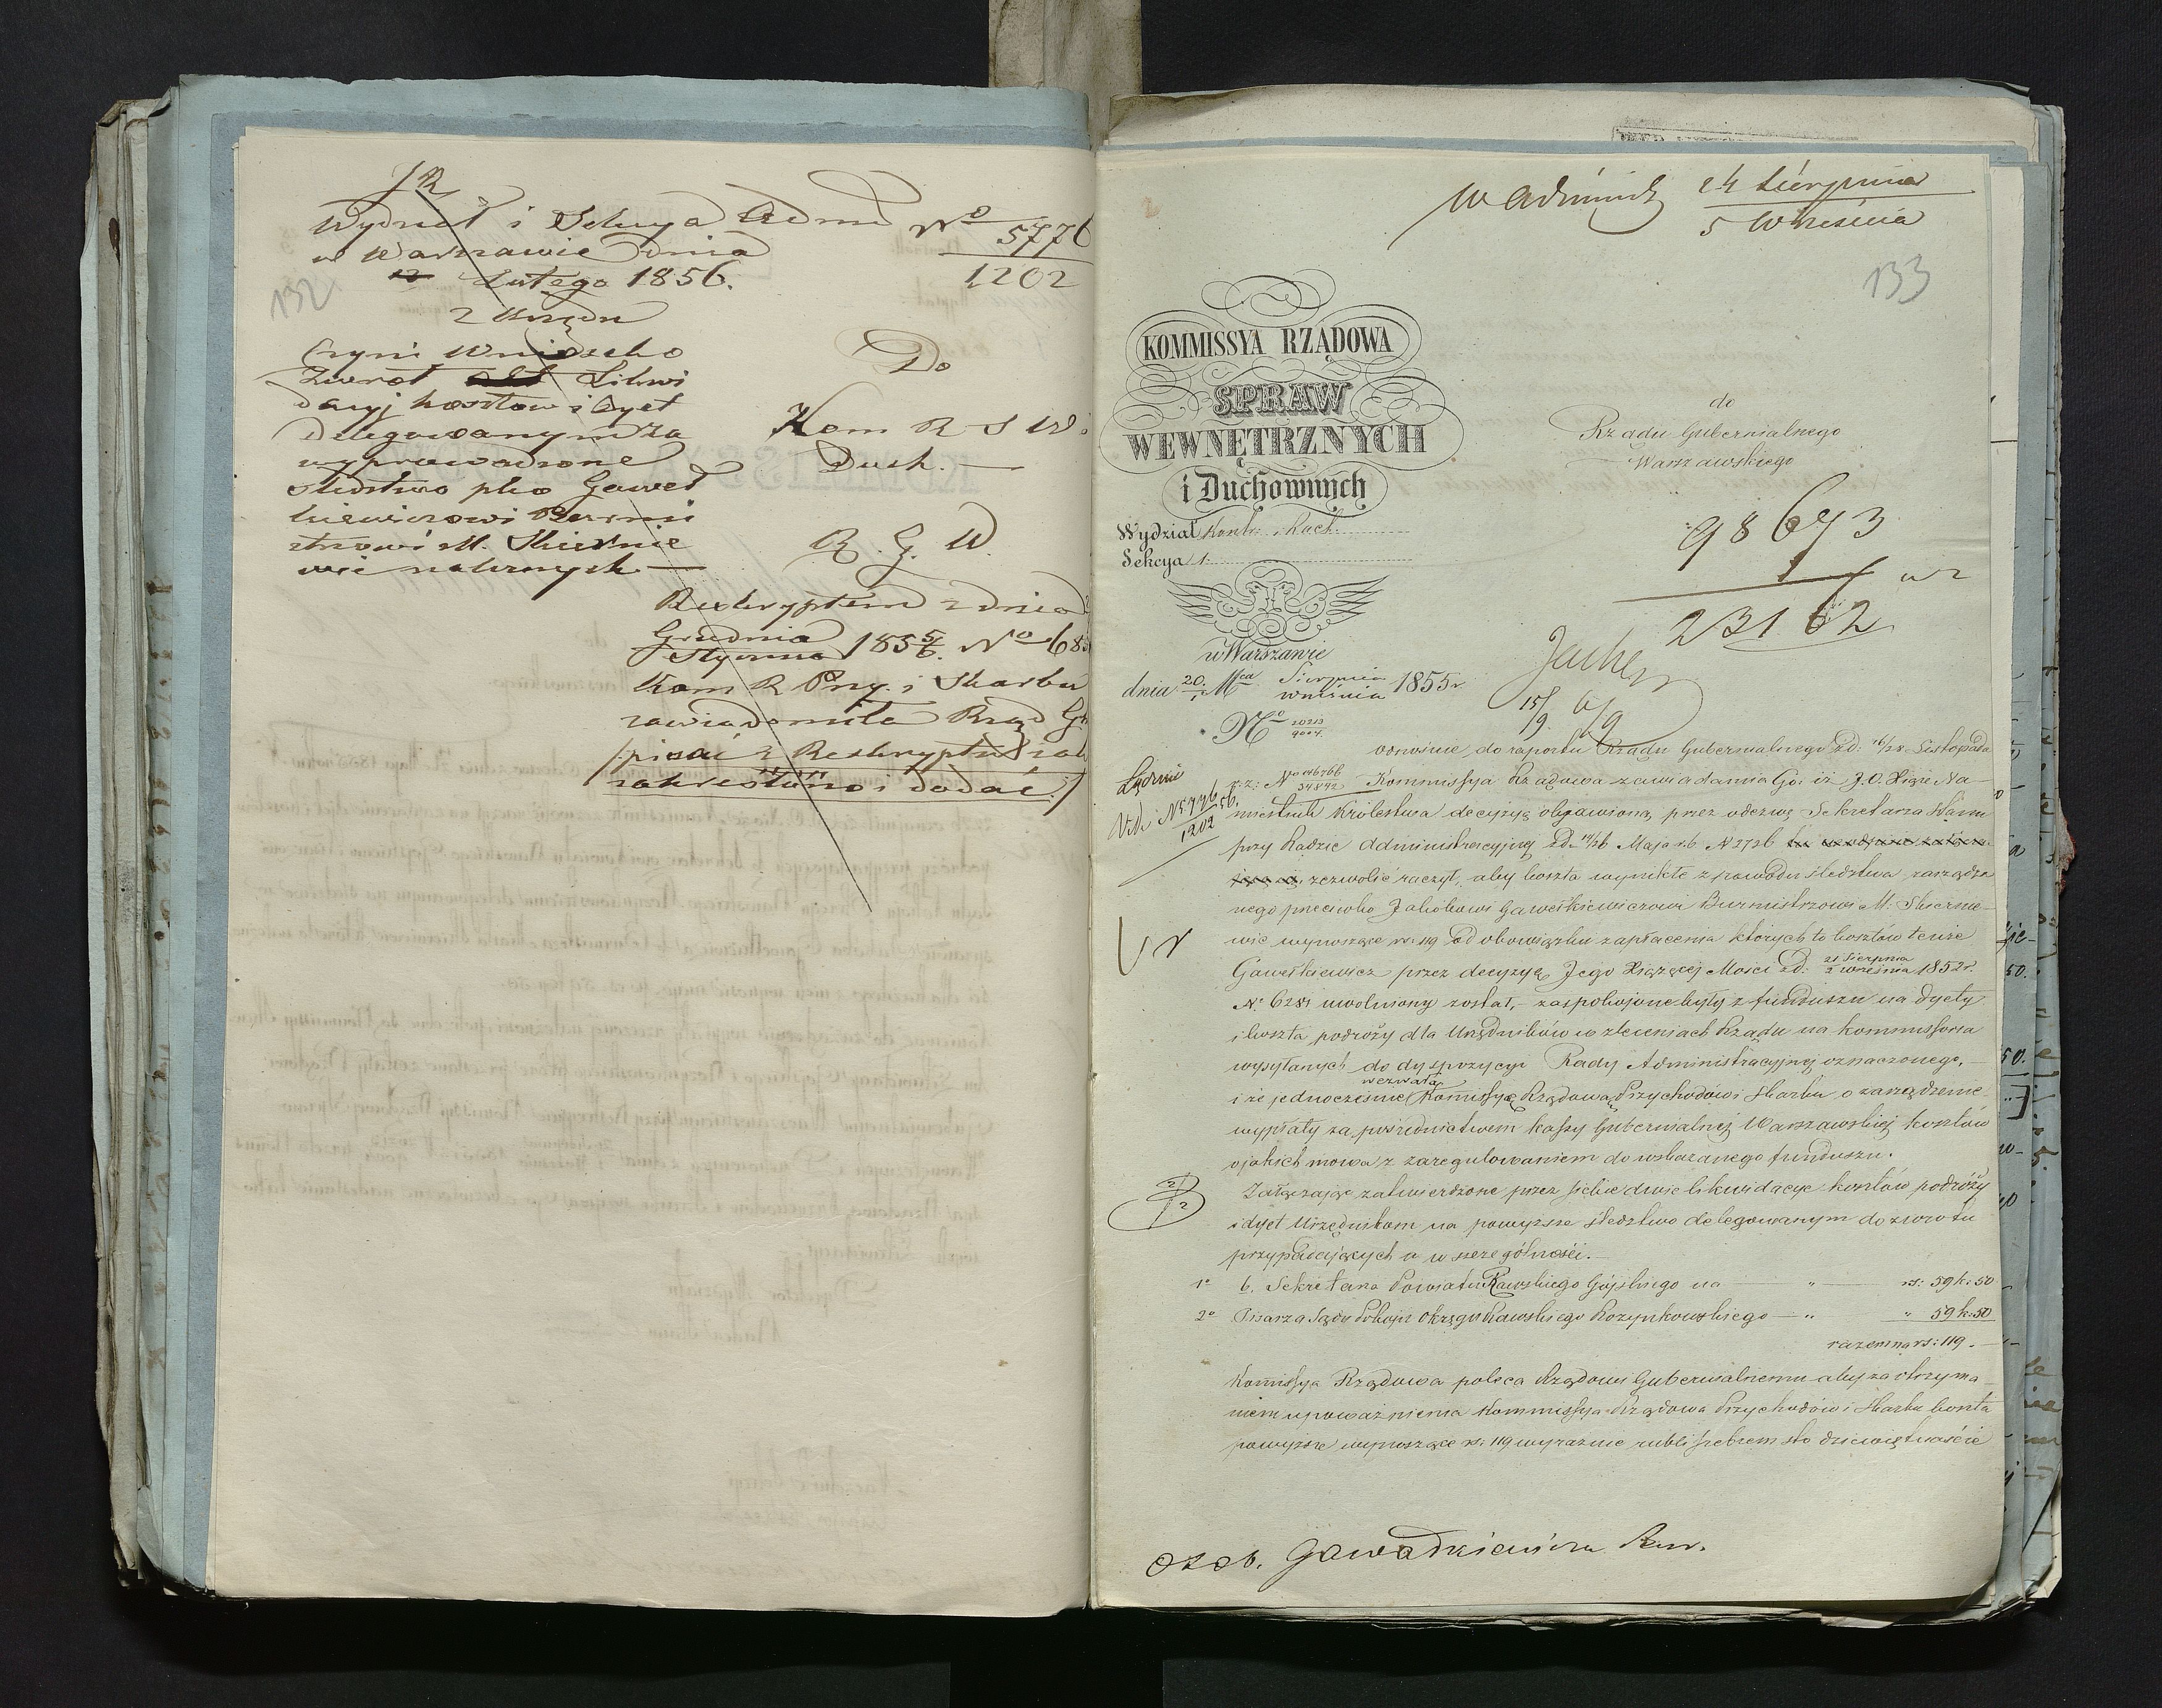 132
Wydział i Sekcya Adm
w Warszawie dnia
12 Lutego 1856.
z Urzędu
Czyni Wniosek o
Zwrot Likwi
dacyj kosztow i dyet
delegowanym za
wyprowadzone
śledztwo pko Gaweł
kiewiczowi Burmi
strzowi M. Skiernie
wic
No 5776
1202
Do
Kom R S W i
Duch. —
R. G. W.
Reskryptem z dnia
Grudnia
Stycznia 185 5/6. No 68
Kom R Przy. i Skarbu
zawiadomiła Rząd G
/: pisać z Reskryptu
zakreślono i dodać :/
W Admini 24 Sierpnia
5 Września
133
KOMMISSYA RZĄDOWA
SPRAW
WEWNĘTRZNYCH
i Duchownych
Wydział Kontr. i Rach.
Sekcya 1.
w Warszawie
dnia 20. Mca Sierpnia
1 września 1855 r.
No 20213
9004.
do
Rządu Gubernialnego
Warszawskiego
98673
23162
15/9 6/9
Vide No 5776/1202 56.
odnośnie do raportu Rządu Gubernialnego z d: 16/28 Listopada
r. z: No 146766
34842 Kommissya Rządowa zawiadamia Go. iż J. O. Xiąże Na-
miestnik Królestwa decyzyą objawioną przez odezwę Sekretarza Stanu
przy Radzie Administracyjnej z d. 14/26 Maja r. b N 2726
zezwolić raczył, aby koszta wynikłe z powodu śledztwa zarządzo
nego przeciwko Jakóbowi Gawełkiewiczowi Burmistrzowi M. Skiernie-
wic wynoszące rs. 119 od obowiązku zapłacenia których to kosztów tenże
Gawełkiewicz przez decyzyą Jego Xiążęcej Mości z d: 21 Sierpnia
2 września 1852 r.
N. 6281 uwolniony został, — zaspokojone były z funduszu na dyety
i koszta podroży dla Urzędników w zleceniach Rządu na kommissoria
wysyłanych do dyspozycyi Rady Administracyjnej oznaczonego, —
i że jednocześnie wezwała Komissyą Rządową Przychodów i Skarbu o zarządzenie
wypłaty za pośrednictwem kassy Gubernialnej Warszawskiej kosztów
o jakich mowa z zaregulowaniem do wskazanego funduszu.
Załączając zatwierdzone przez siebie dwie likwidacye kosztów podróży
i dyet Urzędnikom na powyższe śledztwo delegowanym do zwrotu
przypadających a w szczególności. —
1o b. Sekretarza Powiatu Rawskiego Gójskiego na — " — rs: 59 k: 50
2o Pisarza Sądu Pokoju Okręgu Rawskiego Rożynkowskiego — " " 59 k: 50
razem na rs: 119. —
Komissya Rządowa poleca Rządowi Gubernialnemu aby za otrzyma-
niem upoważnienia Kommissya Rządowa Przychodów i Skarbu koszta
powyższe wynoszące rs. 119 wyraźnie rubli srebrem sto dziewiętnaście